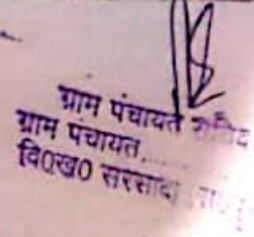 ग्राम पंचायत सचिव
ग्राम पंचायत.....
वि०ख० सरसावा